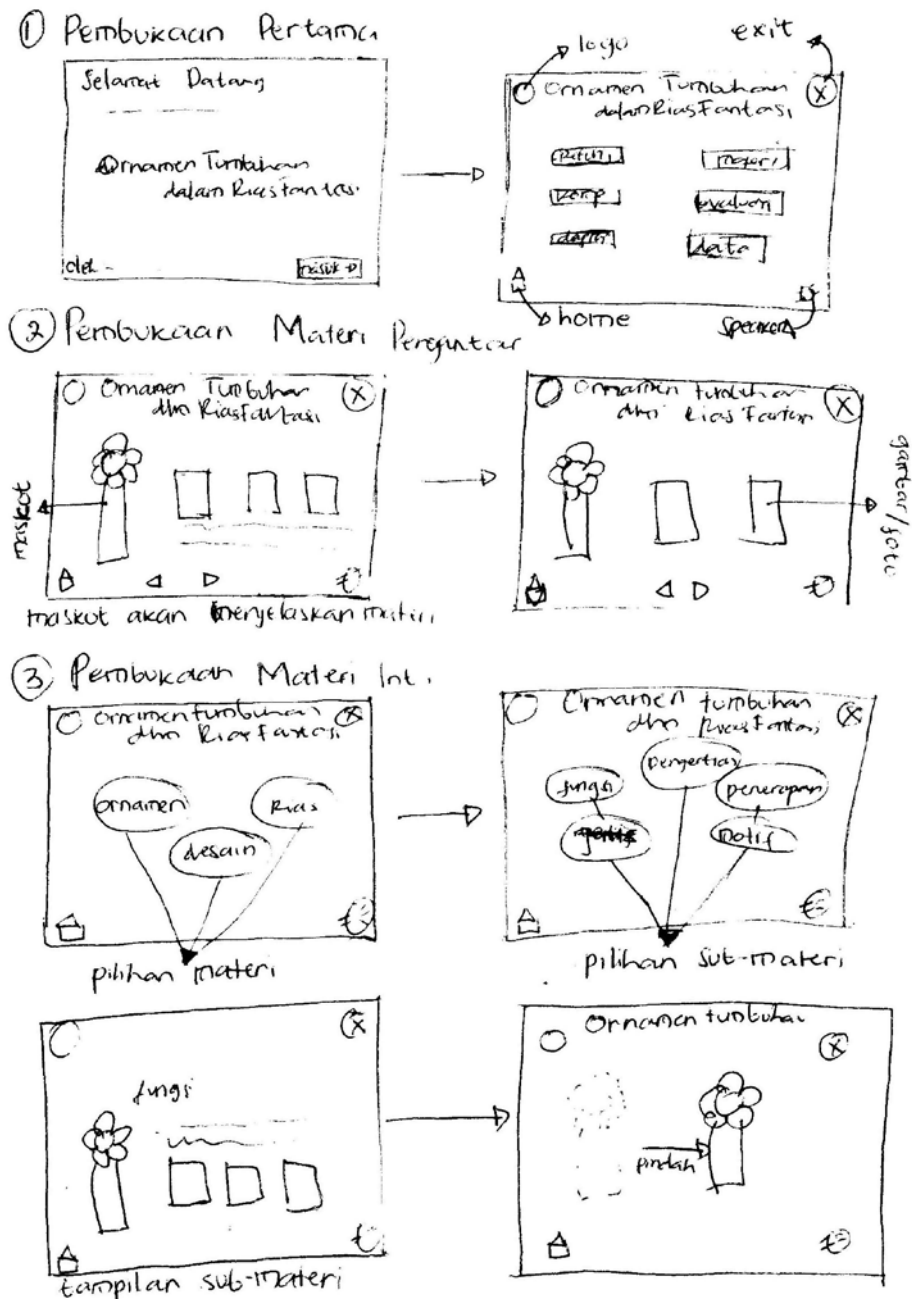 ① Pembukaan Pertama
Selamat Datang
Ornamen Tumbuhan
dalam Rias Fantasi
oleh -
masuk →
logo
exit
Ornamen Tumbuhan
dalam Rias Fantasi
X
materi
evaluasi
data
home
speaker
② Pembukaan Materi Pengantar
Ornamen Tumbuhan
dlm Rias Fantasi
X
maskot
maskot akan menjelaskan materi
Ornamen tumbuhan
dlm Rias Fantasi
X
gambar/foto
③ Pembukaan Materi Inti
Ornamen tumbuhan
dlm Rias Fantasi
X
ornamen
Rias
desain
pilihan materi
Ornamen tumbuhan
dlm Rias Fantasi
X
pengertian
fungsi
penerapan
motif
pilihan sub-materi
X
fungsi
tampilan sub-materi
Ornamen tumbuhan
X
pindah